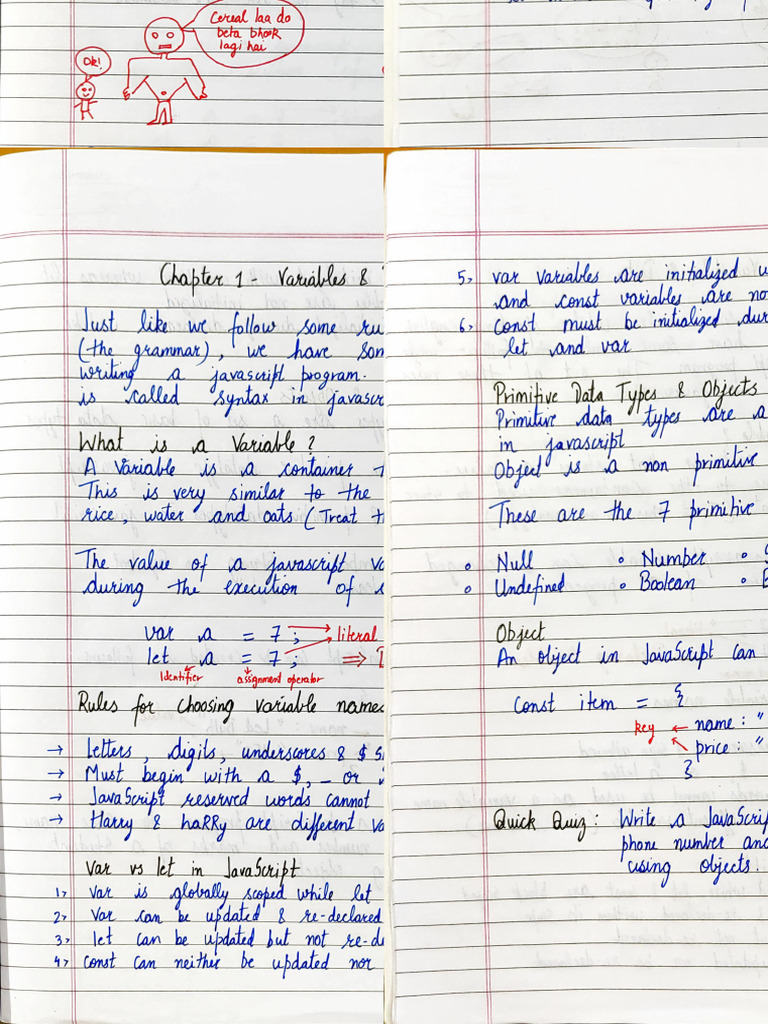 Cereal laa do
beta bhook
lagi hai
Ok!
Chapter 1 - Variables &
Just like we follow some
(the grammar), we have
writing a javascript program.
is called syntax in
What is a Variable?
A Variable is a container
This is very similar to the
rice, water and oats (Treat
The value of a javascript
during the execution of
var a = 7; literal
let a = 7; ⇒
Identifier assignment operator
Rules for choosing variable names
→ Letters, digits, underscores & $
→ Must begin with a $, _ or
→ JavaScript reserved words cannot
→ Harry & haRRy are different
Var vs let in JavaScript
1> var is globally scoped while let
2> var can be updated & re-declared
3> let can be updated but not
4> const can neither be updated nor
5> var variables are initialized
and const variables are
6> const must be initialized
let and var
Primitive Data Types & Objects
Primitive data types are a
in javascript
Object is a non primitive
These are the 7 primitive
• Null • Number •
• Undefined • Boolean •
Object
An object in JavaScript can
Const item = {
key name : "
price : "
}
Quick Quiz : Write a
phone number and
using objects.